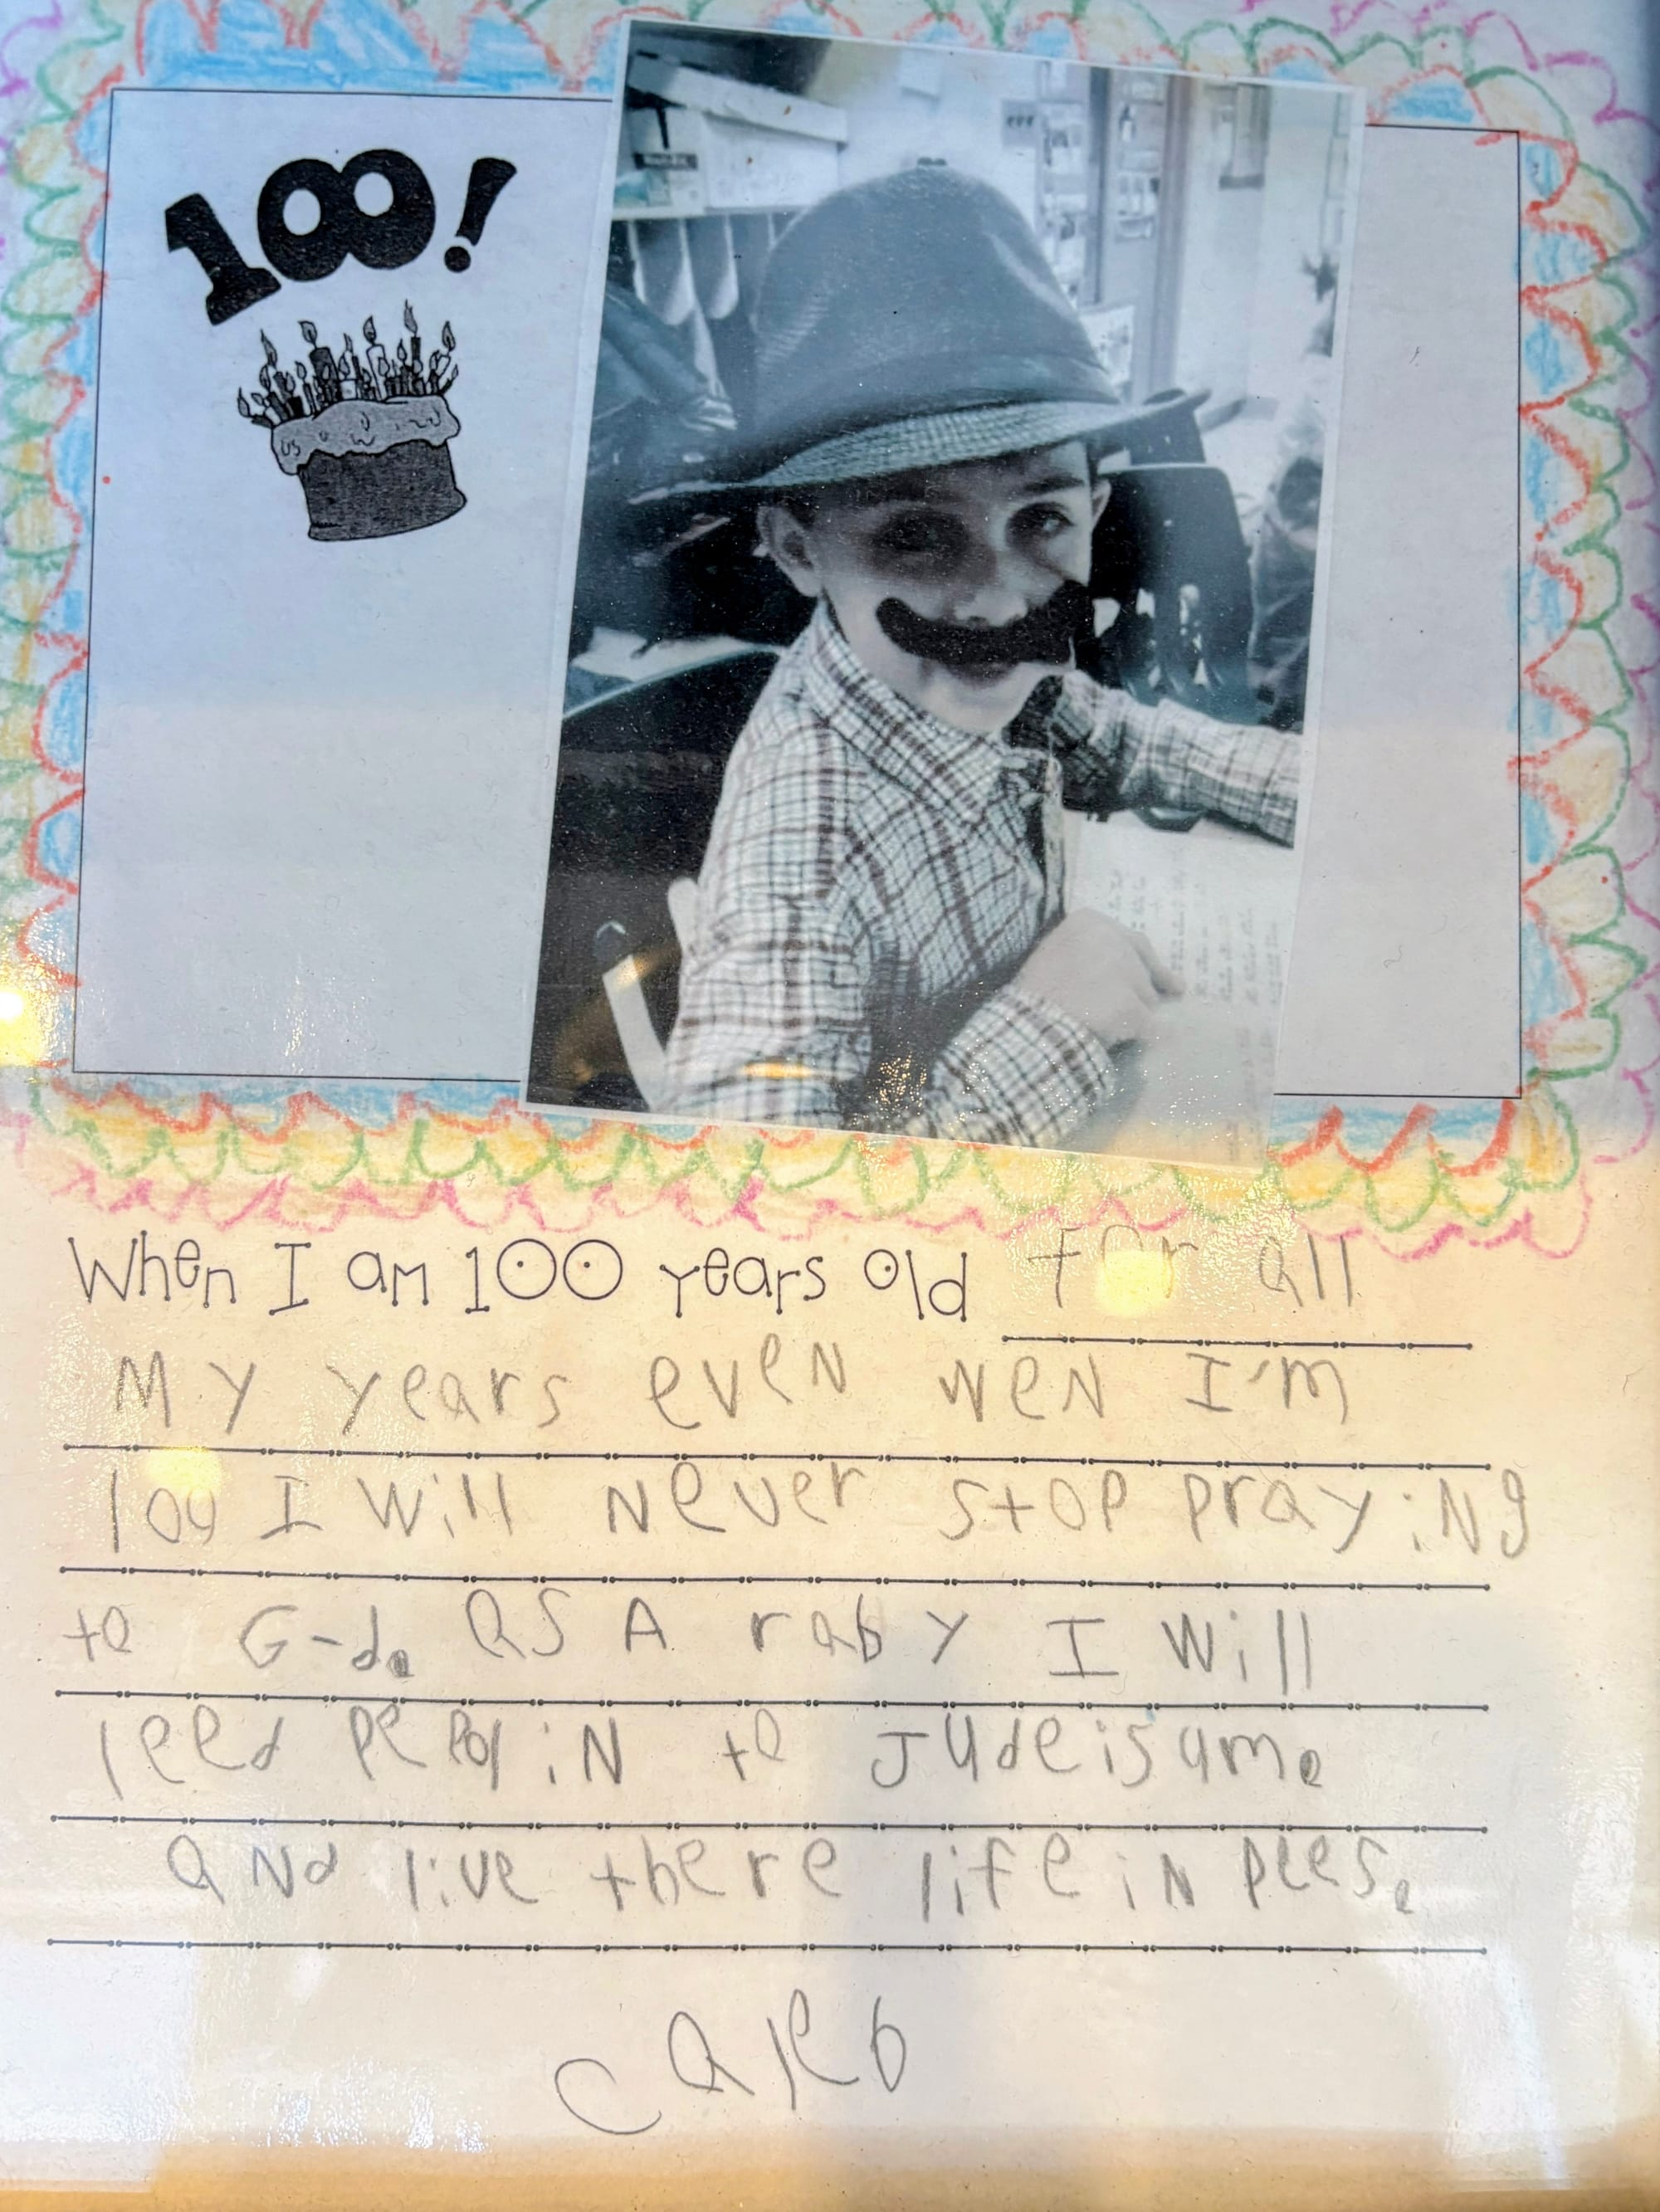 100!
When I am 100 years old for all
My years even wen I'm
100 I will never stop praying
to G-d. as A raby I will
leed pepol in to Judeisum.
and live there life in pees.
caleb